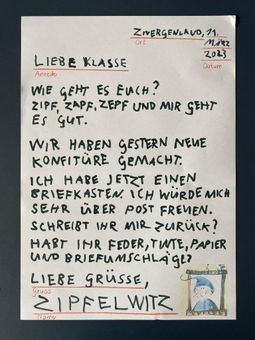 ZWERGENLAND, 11.
Ort
MÄRZ
2023
Datum
LIEBE KLASSE
Anrede
WIE GEHT ES EUCH?
ZIPF, ZAPF, ZEPF UND MIR GEHT
ES GUT.
WIR HABEN GESTERN NEUE
KONFITÜRE GEMACHT.
ICH HABE JETZT EINEN
BRIEFKASTEN. ICH WÜRDE MICH
SEHR ÜBER POST FREUEN.
SCHREIBT IHR MIR ZURÜCK?
HABT IHR FEDER, TINTE, PAPIER
UND BRIEFUMSCHLÄGE?
LIEBE GRÜSSE,
Gruss
ZIPFELWITZ
Name